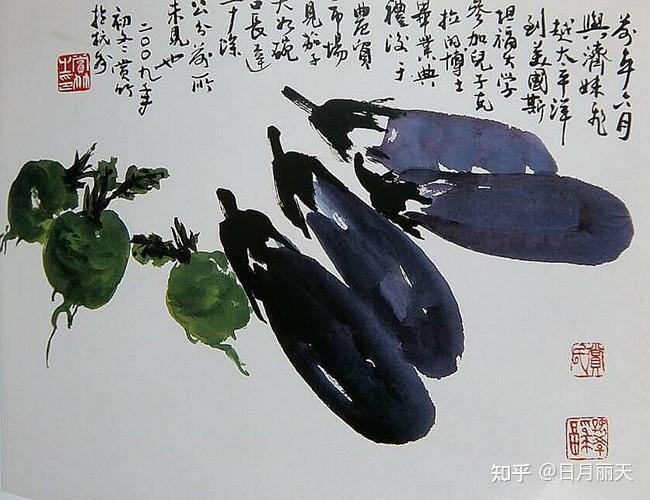 年六月
與濟妹飛
越太平洋
到美國斯
坦福大学
參加兒子克
拉的博士
畢業典
禮後于
農貿
市場
見茄子
大如碗
口長達
十餘
公分前所
未見也
二〇〇九年
初冬賞竹
於杭州
知乎 @日月丽天